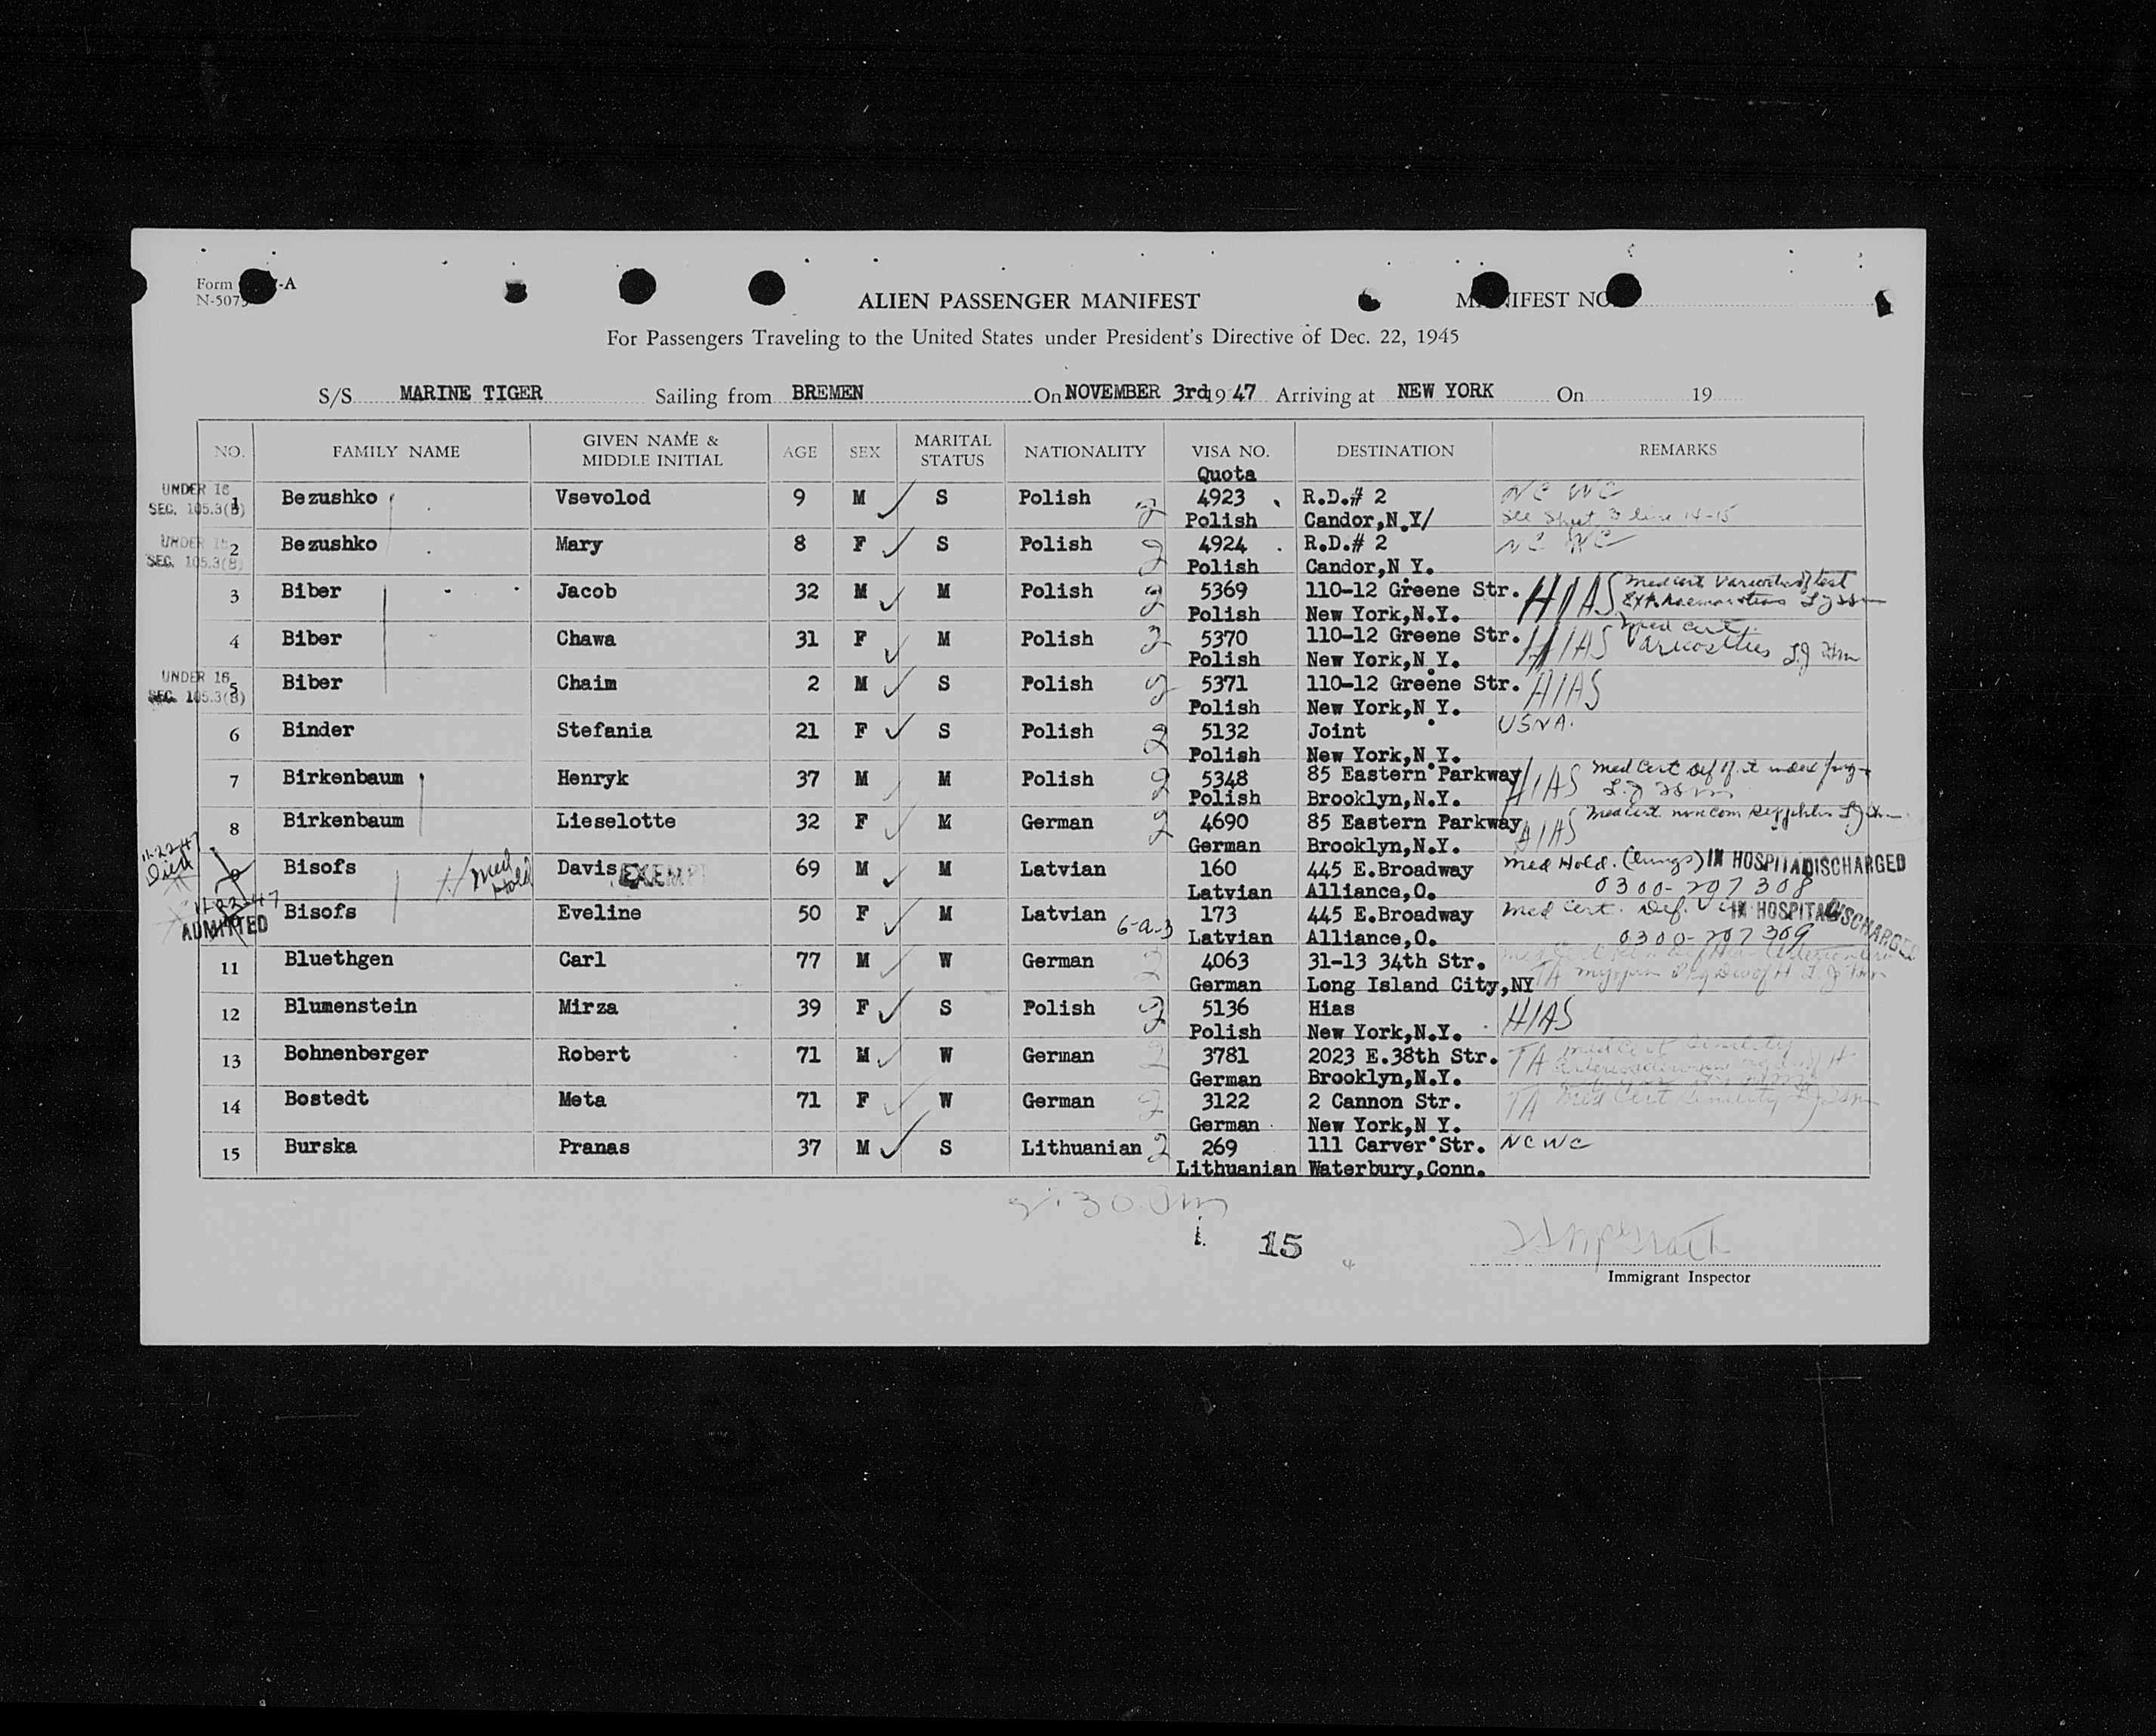 Form -A
N-5075
ALIEN PASSENGER MANIFEST
MANIFEST NO
For Passengers Traveling to the United States under President's Directive of Dec. 22, 1945
S/S MARINE TIGER Sailing from BREMEN On NOVEMBER 3rd 19 47 Arriving at NEW YORK On 19
NO. FAMILY NAME GIVEN NAME & MIDDLE INITIAL AGE SEX MARITAL STATUS NATIONALITY VISA NO. DESTINATION REMARKS
Quota
UNDER 16 SEC. 105.3(B) 1 Bezushko Vsevolod 9 M S Polish 2 4923 R.D.# 2 NC WC
Polish Candor,N.Y/ See Sheet 3 line 14-15
UNDER 16 SEC. 105.3(B) 2 Bezushko Mary 8 F S Polish 2 4924 R.D.# 2 NC WC
Polish Candor,N.Y.
3 Biber Jacob 32 M M Polish 2 5369 110-12 Greene Str. HIAS Med cert
Polish New York,N.Y.
4 Biber Chawa 31 F M Polish 2 5370 110-12 Greene Str. HIAS Med cert.
Polish New York,N.Y. Varicosities
UNDER 16 SEC. 105.3(B) 5 Biber Chaim 2 M S Polish 2 5371 110-12 Greene Str. HIAS
Polish New York,N.Y.
6 Binder Stefania 21 F S Polish 2 5132 Joint USNA.
Polish New York,N.Y.
7 Birkenbaum Henryk 37 M M Polish 2 5348 85 Eastern Parkway HIAS Med Cert Def of
Polish Brooklyn,N.Y.
8 Birkenbaum Lieselotte 32 F M German 2 4690 85 Eastern Parkway HIAS Med cert
German Brooklyn,N.Y.
11-22-47 Died 9 Bisofs H Med Hold Davis EXEMPT 69 M M Latvian 160 445 E.Broadway Med Hold. (lungs) IN HOSPITAL DISCHARGED
Latvian Alliance,O. 0300-207308
11-22-47 ADMITTED Bisofs Eveline 50 F M Latvian 6-a-3 173 445 E.Broadway Med Cert. Def. IN HOSPITAL DISCHARGED
Latvian Alliance,O. 0300-207309
11 Bluethgen Carl 77 M W German 2 4063 31-13 34th Str.
German Long Island City,NY TA
12 Blumenstein Mirza 39 F S Polish 2 5136 Hias HIAS
Polish New York,N.Y.
13 Bohnenberger Robert 71 M W German 2 3781 2023 E.38th Str. TA Med Cert Senility
German Brooklyn,N.Y.
14 Bostedt Meta 71 F W German 2 3122 2 Cannon Str. TA Med Cert Senility
German New York,N.Y.
15 Burska Pranas 37 M S Lithuanian 2 269 111 Carver Str. NC WC
Lithuanian Waterbury,Conn.
15
Immigrant Inspector